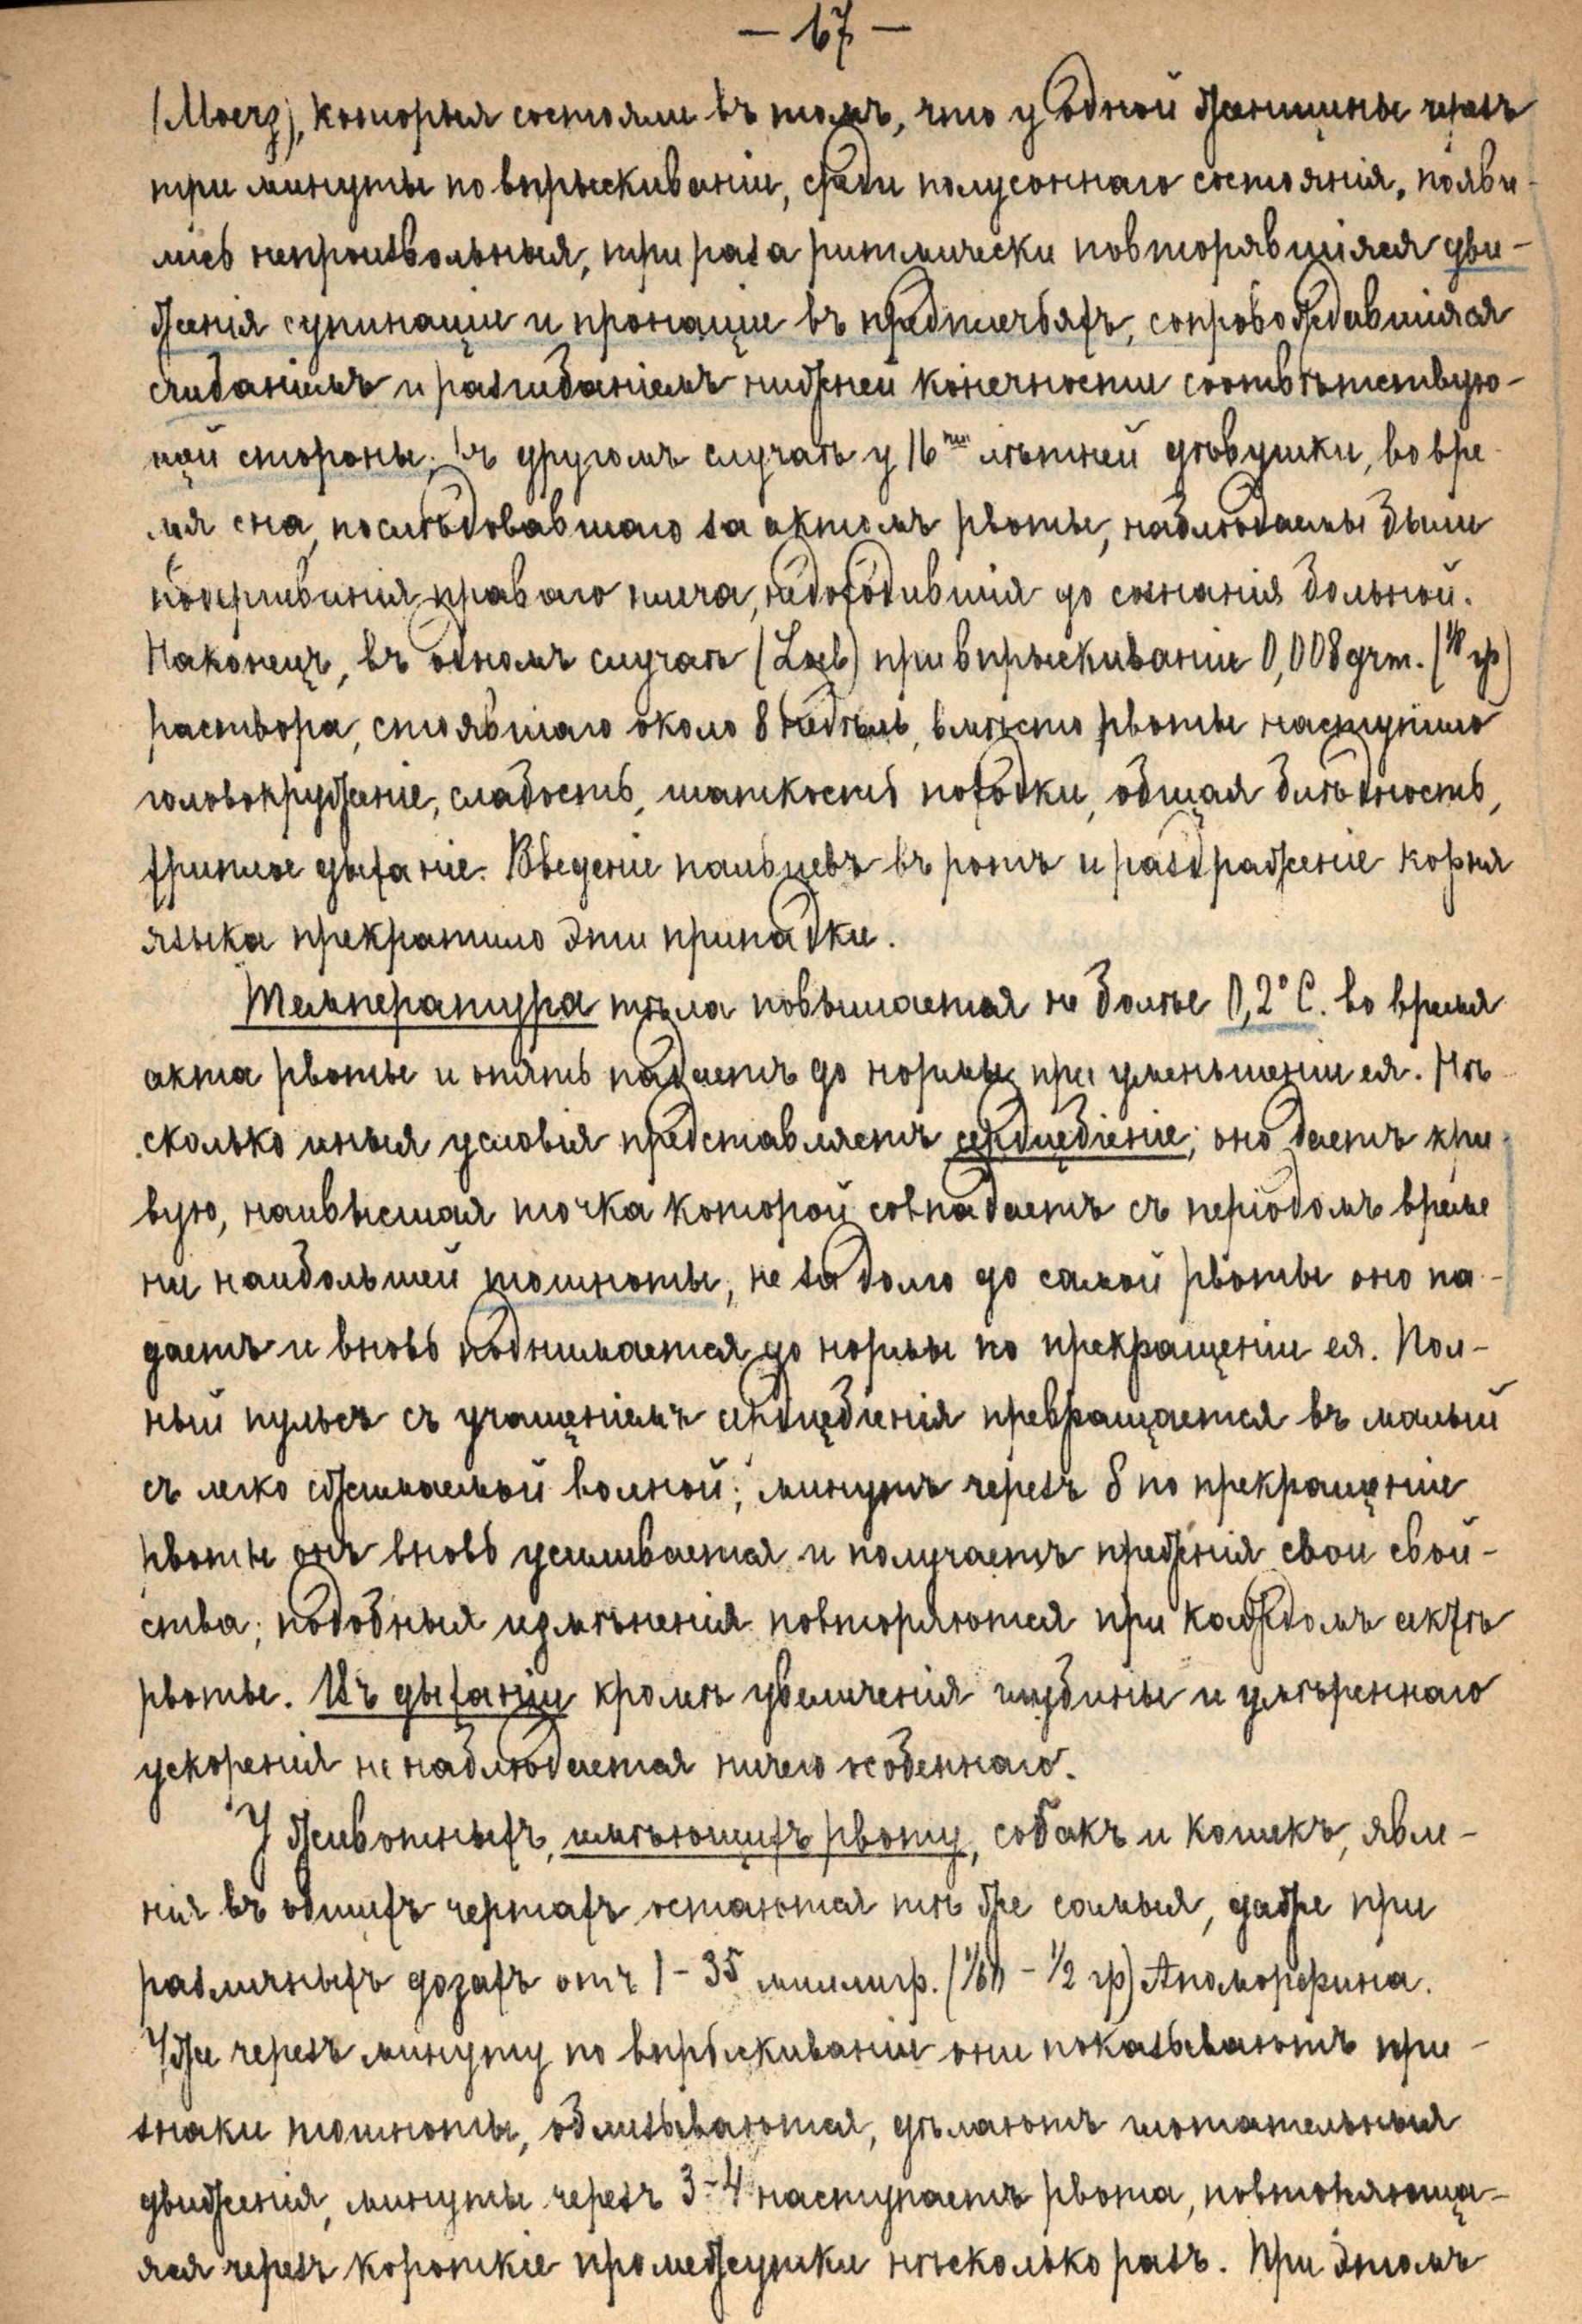 — 67 —
(Moerz), которыя состояли въ томъ, что у одной женщины черезъ
три минуты по впрыскиваніи, среди полусоннаго состоянія, появи-
лись непроизвольныя, три раза ритмически повторявшіяся дви-
женія супинаціи и пронаціи въ предплечьяхъ, сопровождавшіяся
сгибаніемъ и разгибаніемъ нижней конечности соотвѣтствую-
щей стороны. Въ другомъ случаѣ у 16ти лѣтней дѣвушки, во вре-
мя сна, послѣдовавшаго за актомъ рвоты, наблюдаемы были
подергиванія праваго плеча, недоходившія до сознанія больной.
Наконецъ, въ одномъ случаѣ (Loeb) при впрыскиваніи 0,008 grm. (1/8 гр)
раствора, стоявшаго около 8 недѣль, вмѣсто рвоты наступило
головокруженіе, слабость, шаткость походки, общая блѣдность,
хриплое дыханіе. Введеніе пальцевъ въ ротъ и раздраженіе корня
языка прекратило эти припадки.
Температура тѣла повышается не болѣе 0,2° С. во время
акта рвоты и опять падаетъ до нормы при уменьшеніи ея. Нѣ-
сколько иныя условія представляетъ сердцебіеніе; оно даетъ кри-
вую, наивысшая точка которой совпадаетъ съ періодомъ време
ни наибольшей тошноты, не задолго до самой рвоты оно па-
даетъ и вновь поднимается до нормы по прекращеніи ея. Пол-
ный пульсъ съ учащеніемъ сердцебіенія превращается въ малый
съ легко сжимаемой волной; минутъ черезъ 8 по прекращеніи
рвоты онъ вновь усиливается и получаетъ прежнія свои свой-
ства; подобныя измѣненія повторяются при каждомъ актѣ
рвоты. Въ дыханіи кромѣ увеличенія глубины и умѣреннаго
ускоренія не наблюдается ничего особеннаго.
У животныхъ, имѣющихъ рвоту, собакъ и кошекъ, явле-
нія въ общихъ чертахъ остаются тѣ же самыя, даже при
различныхъ дозахъ отъ 1 - 35 миллигр. (1/60 - 1/2 гр) Апоморфина.
Уже черезъ минуту по впрыскиваніи они показываютъ при-
знаки тошноты, облизываются, дѣлаютъ глотательныя
движенія, минуты черезъ 3-4 наступаетъ рвота, повторяюща-
яся черезъ короткіе промежутки нѣсколько разъ. При этомъ